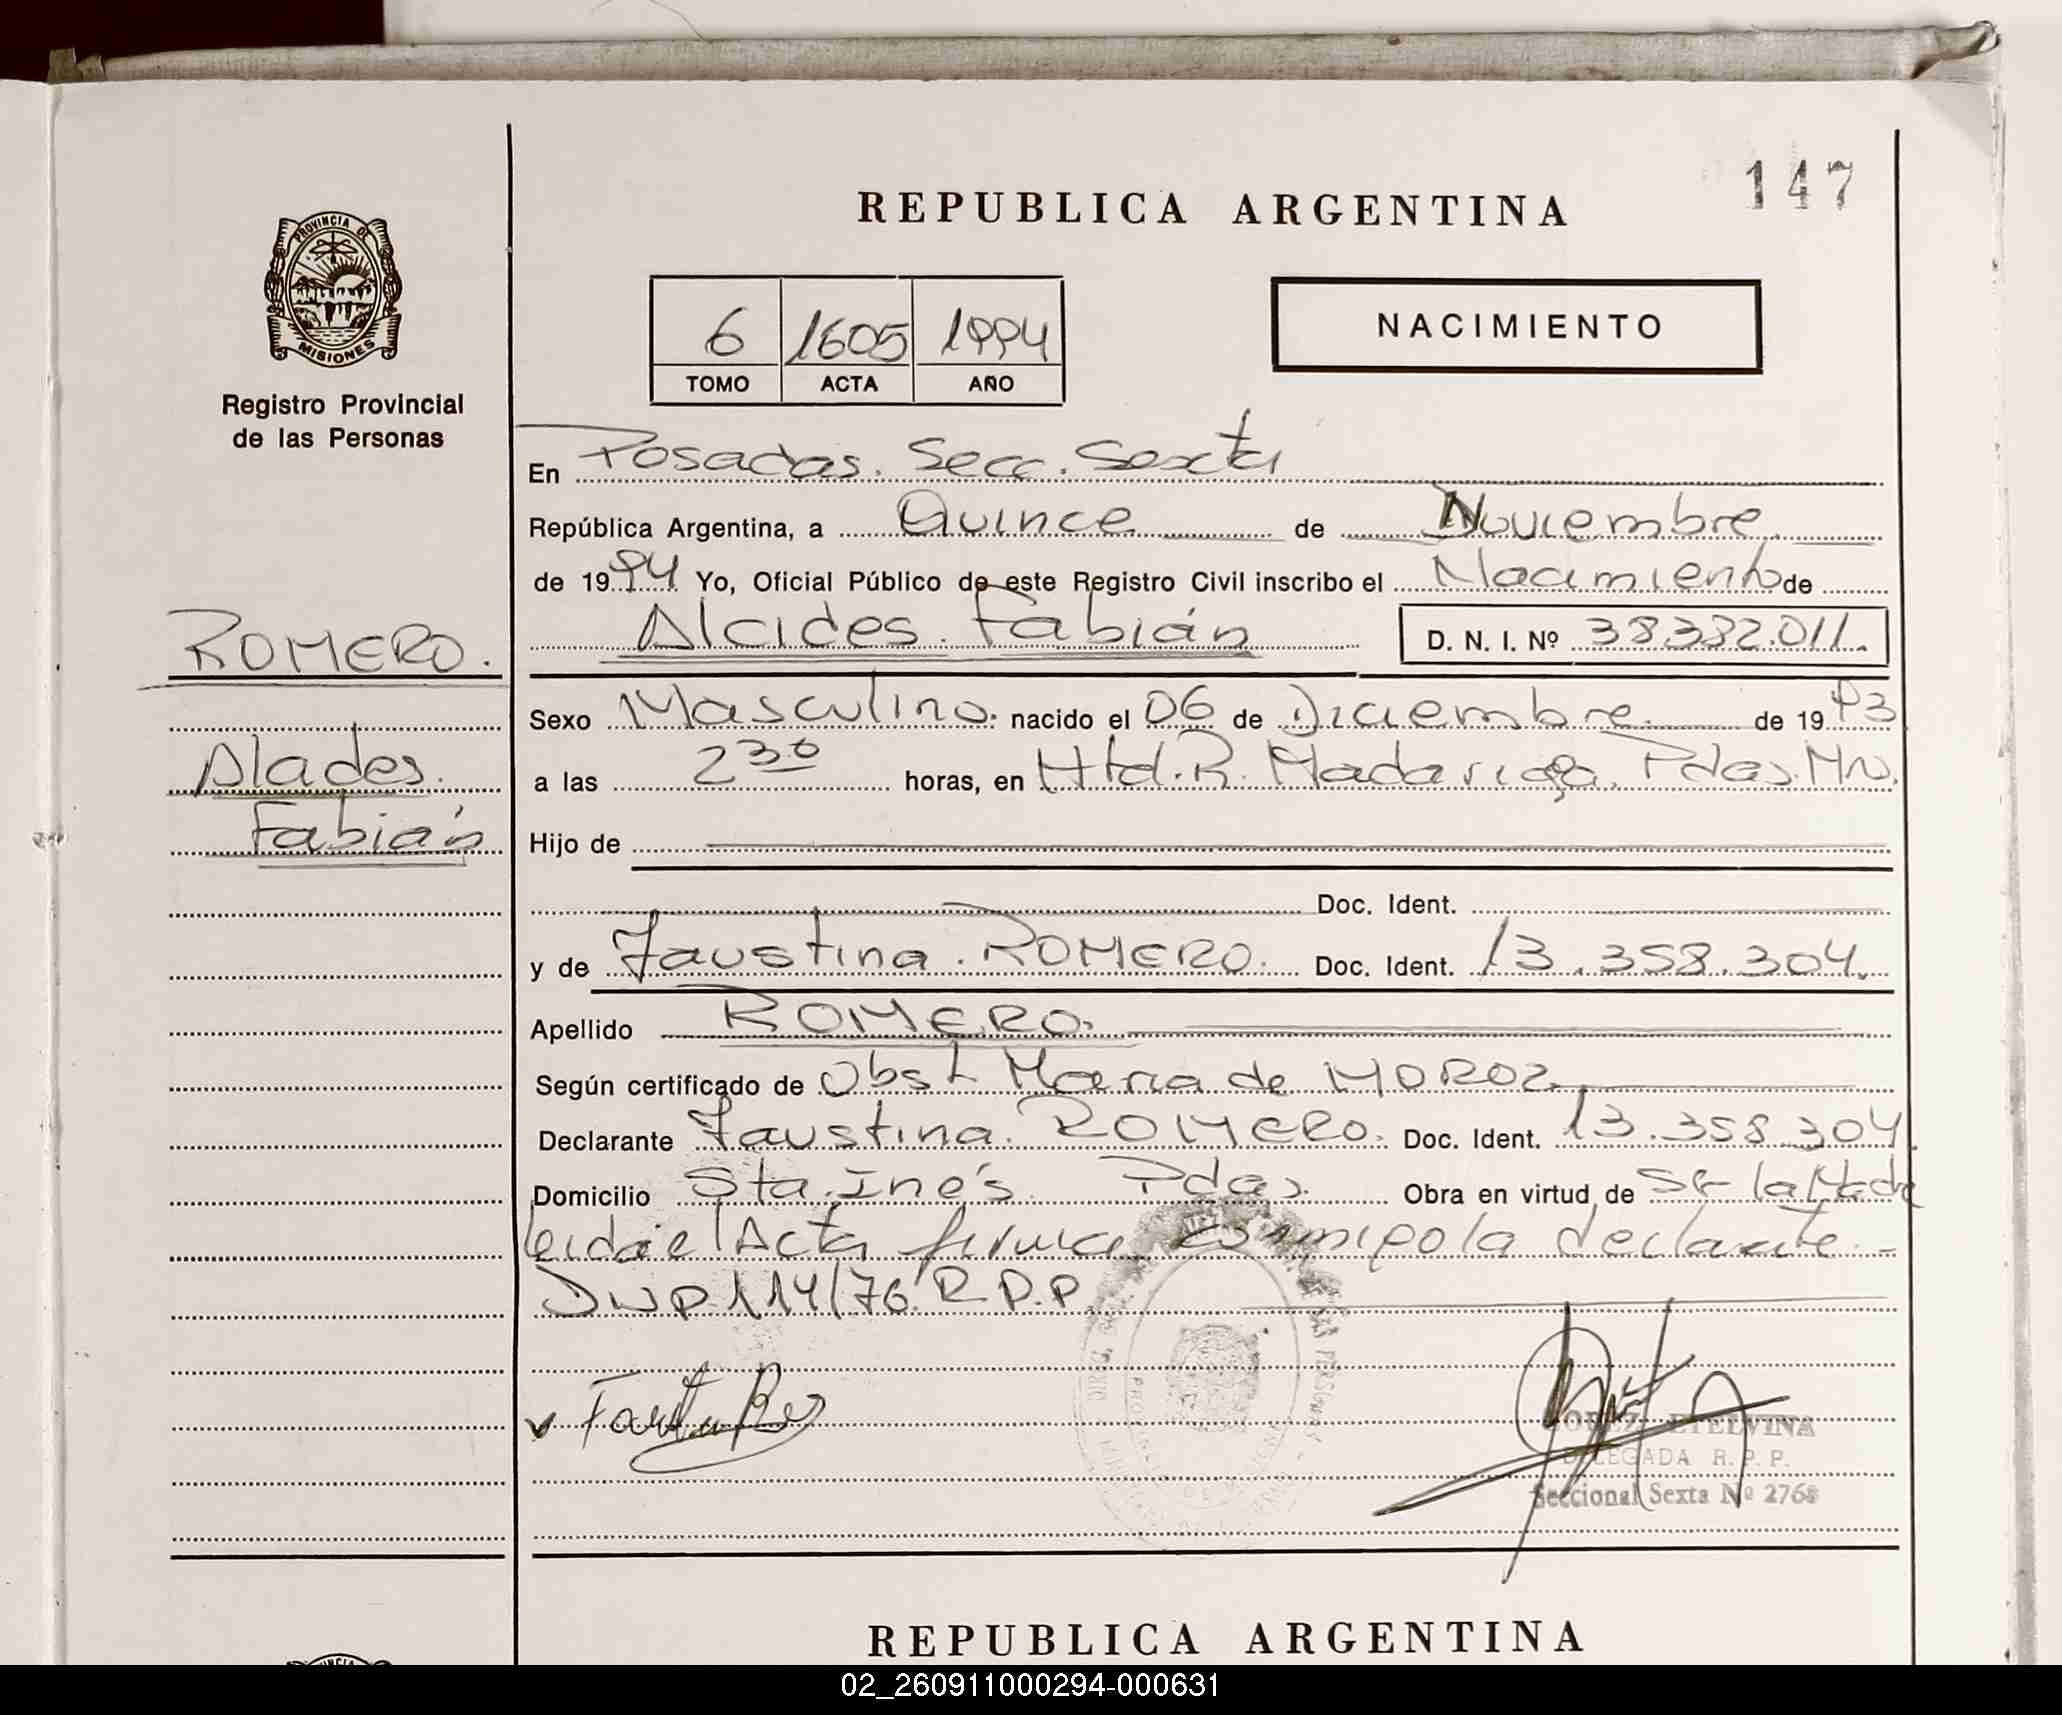 147
REPUBLICA ARGENTINA
PROVINCIA DE
MISIONES
Registro Provincial
de las Personas
6 1605 1994
TOMO ACTA AÑO
NACIMIENTO
En Posadas. Secc. Sexta
República Argentina, a Quince de Noviembre
de 1994 Yo, Oficial Público de este Registro Civil inscribo el Nacimiento de
Alcides Fabián D. N. I. Nº 38382.011.
ROMERO.
Sexo Masculino. nacido el 06 de Diciembre de 1993
Alcides.
a las 23º horas, en Htd. R. Madariaga. Pdas. Mn.
Fabián
Hijo de
Doc. Ident.
y de Faustina. ROMERO. Doc. Ident. 13.358.304.
Apellido ROMERO.
Según certificado de Obst Maria de MOROZ
Declarante Faustina. ROMERO. Doc. Ident. 13.358.304.
Domicilio Sta. Inés. Pdas. Obra en virtud de Ser la Madre
Leida el Acta firma conmigo la declarante.-
114/76. R.P.P.
LOPEZ ETELVINA
DELEGADA R. P. P.
Seccional Sexta Nº 2768
REPUBLICA ARGENTINA
02_260911000294-000631